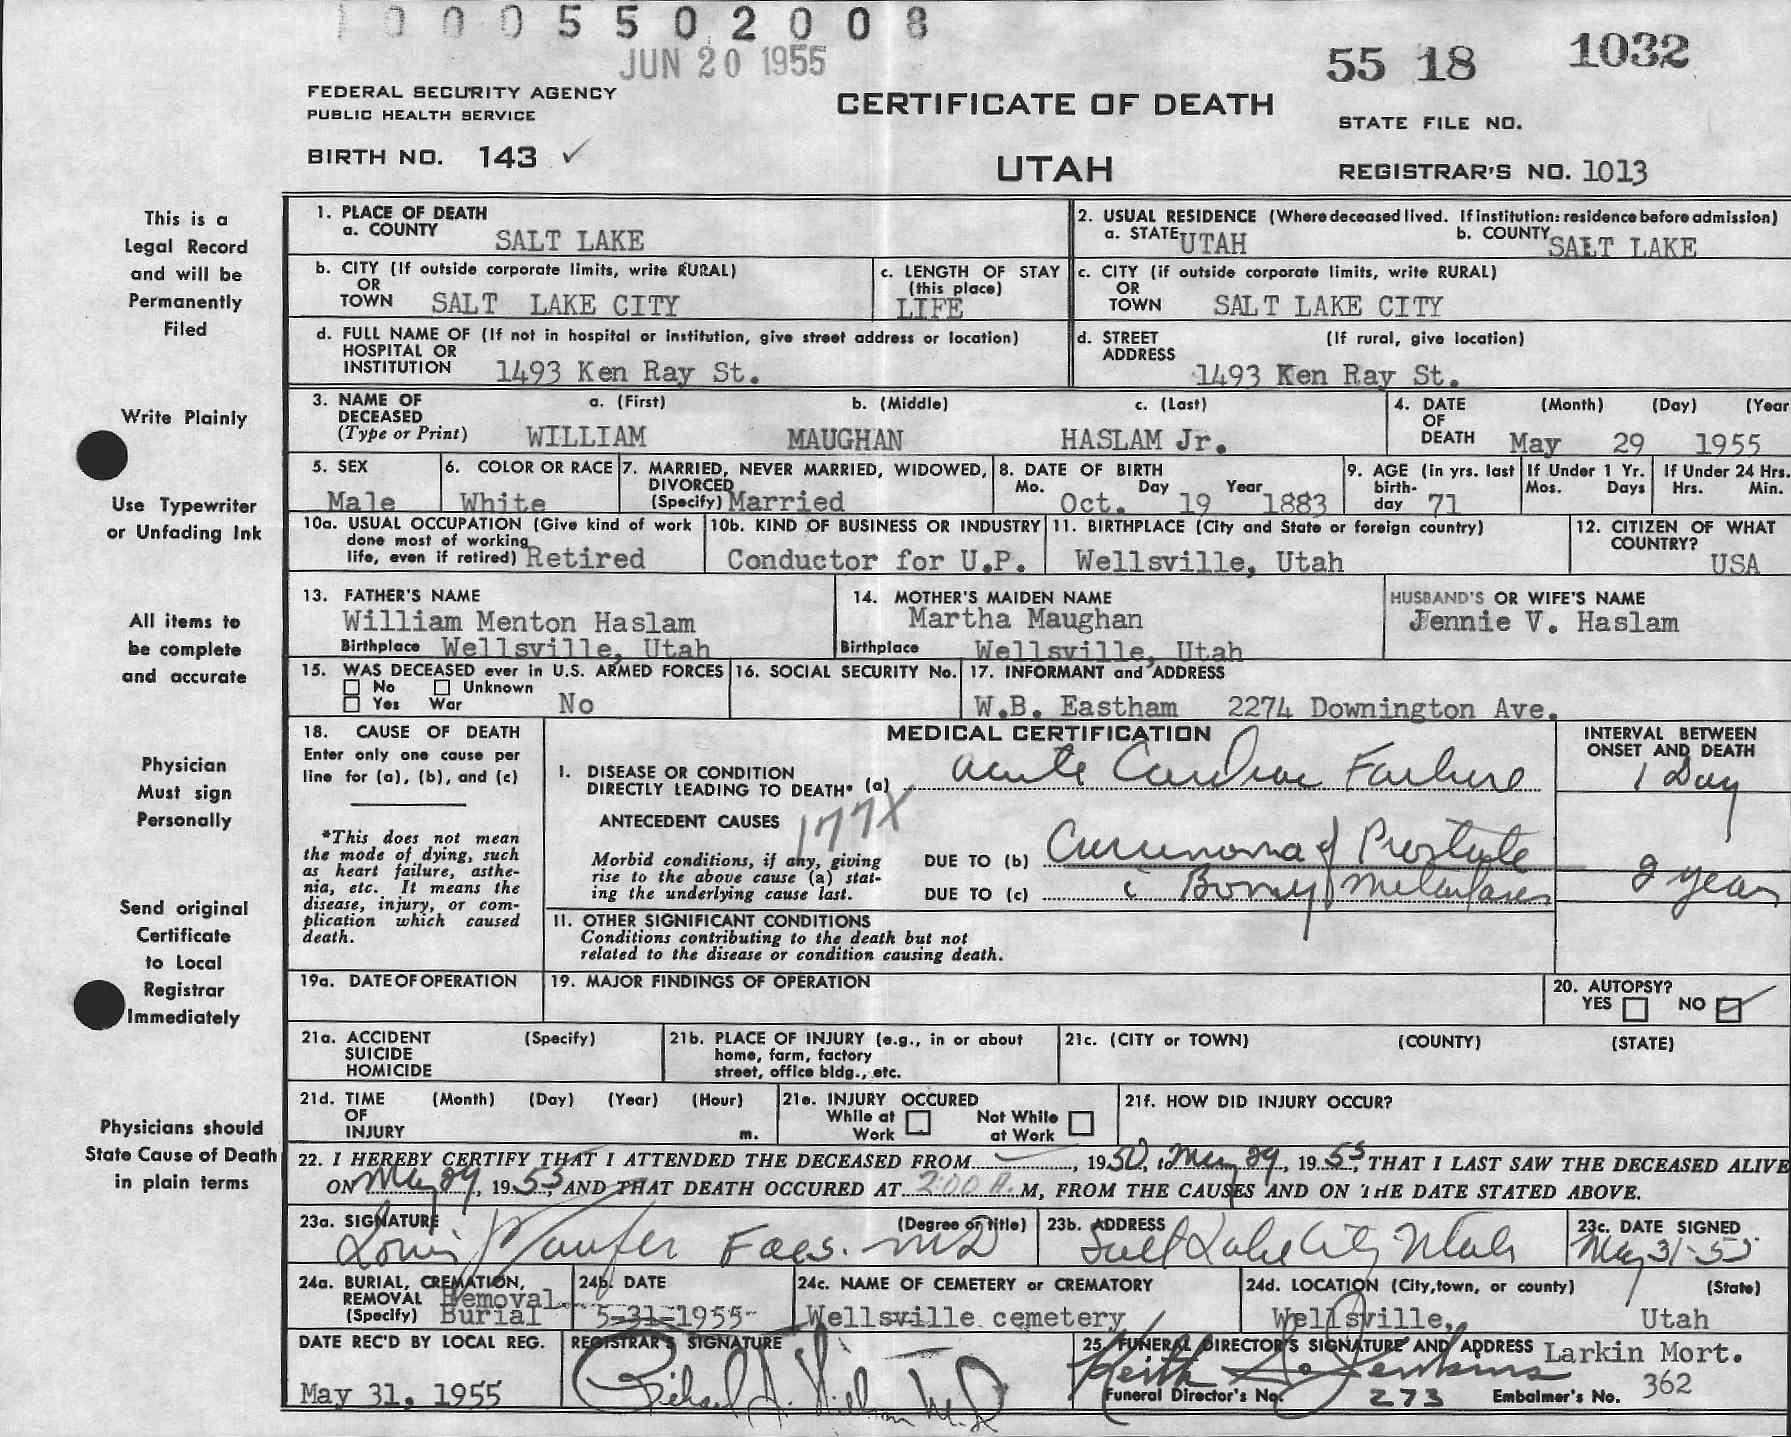 1 0 0 0 5 5 0 2 0 0 8
JUN 20 1955
55 18 1032
FEDERAL SECURITY AGENCY
PUBLIC HEALTH SERVICE
CERTIFICATE OF DEATH
STATE FILE NO.
BIRTH NO. 143 ✓
UTAH
REGISTRAR'S NO. 1013
This is a
Legal Record
and will be
Permanently
Filed
Write Plainly
Use Typewriter
or Unfading Ink
All items to
be complete
and accurate
Physician
Must sign
Personally
Send original
Certificate
to Local
Registrar
Immediately
Physicians should
State Cause of Death
in plain terms
1. PLACE OF DEATH
a. COUNTY SALT LAKE
2. USUAL RESIDENCE (Where deceased lived. If institution: residence before admission)
a. STATE UTAH b. COUNTY SALT LAKE
b. CITY (If outside corporate limits, write RURAL)
OR
TOWN SALT LAKE CITY
c. LENGTH OF STAY
(this place)
LIFE
c. CITY (if outside corporate limits, write RURAL)
OR
TOWN SALT LAKE CITY
d. FULL NAME OF (If not in hospital or institution, give street address or location)
HOSPITAL OR
INSTITUTION 1493 Ken Ray St.
d. STREET (If rural, give location)
ADDRESS
1493 Ken Ray St.
3. NAME OF a. (First) b. (Middle) c. (Last)
DECEASED
(Type or Print) WILLIAM MAUGHAN HASLAM Jr.
4. DATE (Month) (Day) (Year
OF
DEATH May 29 1955
5. SEX
Male
6. COLOR OR RACE
White
7. MARRIED, NEVER MARRIED, WIDOWED,
DIVORCED
(Specify) Married
8. DATE OF BIRTH
Mo. Day Year
Oct. 19 1883
9. AGE (in yrs. last
birth-
day 71
If Under 1 Yr.
Mos. Days
If Under 24 Hrs.
Hrs. Min.
10a. USUAL OCCUPATION (Give kind of work
done most of working
life, even if retired) Retired
10b. KIND OF BUSINESS OR INDUSTRY
Conductor for U.P.
11. BIRTHPLACE (City and State or foreign country)
Wellsville, Utah
12. CITIZEN OF WHAT
COUNTRY?
USA
13. FATHER'S NAME
William Menton Haslam
Birthplace Wellsville, Utah
14. MOTHER'S MAIDEN NAME
Martha Maughan
Birthplace Wellsville, Utah
HUSBAND'S OR WIFE'S NAME
Jennie V. Haslam
15. WAS DECEASED ever in U.S. ARMED FORCES
No Unknown
Yes War No
16. SOCIAL SECURITY No.
17. INFORMANT and ADDRESS
W.B. Eastham 2274 Downington Ave.
18. CAUSE OF DEATH
Enter only one cause per
line for (a), (b), and (c)
*This does not mean
the mode of dying, such
as heart failure, asthe-
nia, etc. It means the
disease, injury, or com-
plication which caused
death.
MEDICAL CERTIFICATION
I. DISEASE OR CONDITION
DIRECTLY LEADING TO DEATH* (a) Acute Cardiac Failure
ANTECEDENT CAUSES 177X
Morbid conditions, if any, giving
rise to the above cause (a) stat-
ing the underlying cause last.
DUE TO (b) Carcinoma of Prostate
DUE TO (c) c Boney Metastases
INTERVAL BETWEEN
ONSET AND DEATH
1 Day
2 years
II. OTHER SIGNIFICANT CONDITIONS
Conditions contributing to the death but not
related to the disease or condition causing death.
19a. DATE OF OPERATION
19. MAJOR FINDINGS OF OPERATION
20. AUTOPSY?
YES NO
21a. ACCIDENT (Specify)
SUICIDE
HOMICIDE
21b. PLACE OF INJURY (e.g., in or about
home, farm, factory
street, office bldg., etc.
21c. (CITY or TOWN) (COUNTY) (STATE)
21d. TIME (Month) (Day) (Year) (Hour)
OF
INJURY m.
21e. INJURY OCCURED
While at Not While
Work at Work
21f. HOW DID INJURY OCCUR?
22. I HEREBY CERTIFY THAT I ATTENDED THE DECEASED FROM , 1950, May 29, 1955, THAT I LAST SAW THE DECEASED ALIVE
ON May 29, 1955, AND THAT DEATH OCCURED AT 2:00 A. M, FROM THE CAUSES AND ON THE DATE STATED ABOVE.
23a. SIGNATURE (Degree or title)
Louis Facs. MD
23b. ADDRESS
Salt Lake City Utah
23c. DATE SIGNED
May 31-55
24a. BURIAL, CREMATION,
REMOVAL Removal
(Specify) Burial
24b. DATE
5-31-1955
24c. NAME OF CEMETERY or CREMATORY
Wellsville cemetery
24d. LOCATION (City, town, or county) (State)
Wellsville, Utah
DATE REC'D BY LOCAL REG.
May 31, 1955
REGISTRAR'S SIGNATURE
M.D
25. FUNERAL DIRECTOR'S SIGNATURE AND ADDRESS Larkin Mort.
Keith Jenkins
Funeral Director's No. 273 Embalmer's No. 362